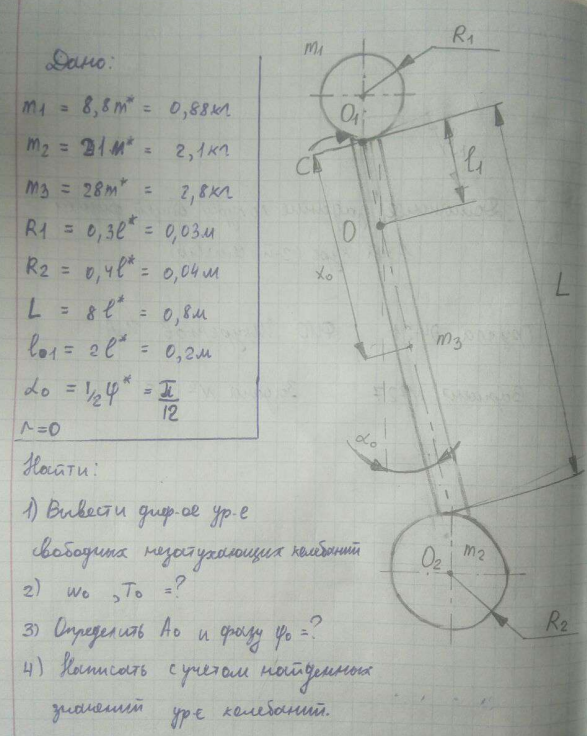 Дано:
m1 = 8,8m* = 0,88кг
m2 = 21м* = 2,1кг
m3 = 28m* = 2,8кг
R1 = 0,3l* = 0,03м
R2 = 0,4l* = 0,04м
L = 8l* = 0,8м
l01 = 2l* = 0,2м
α0 = 1/2φ* = π/12
r=0
Найти:
1) Вывести диф-ое ур-е
свободных незатухающих колебаний
2) ω0 , T0 = ?
3) Определить A0 и фазу φ0 = ?
4) Написать с учетом найденных
значений ур-е колебаний.
m1
R1
O1
C
l1
O
x0
L
m3
α0
O2
m2
R2